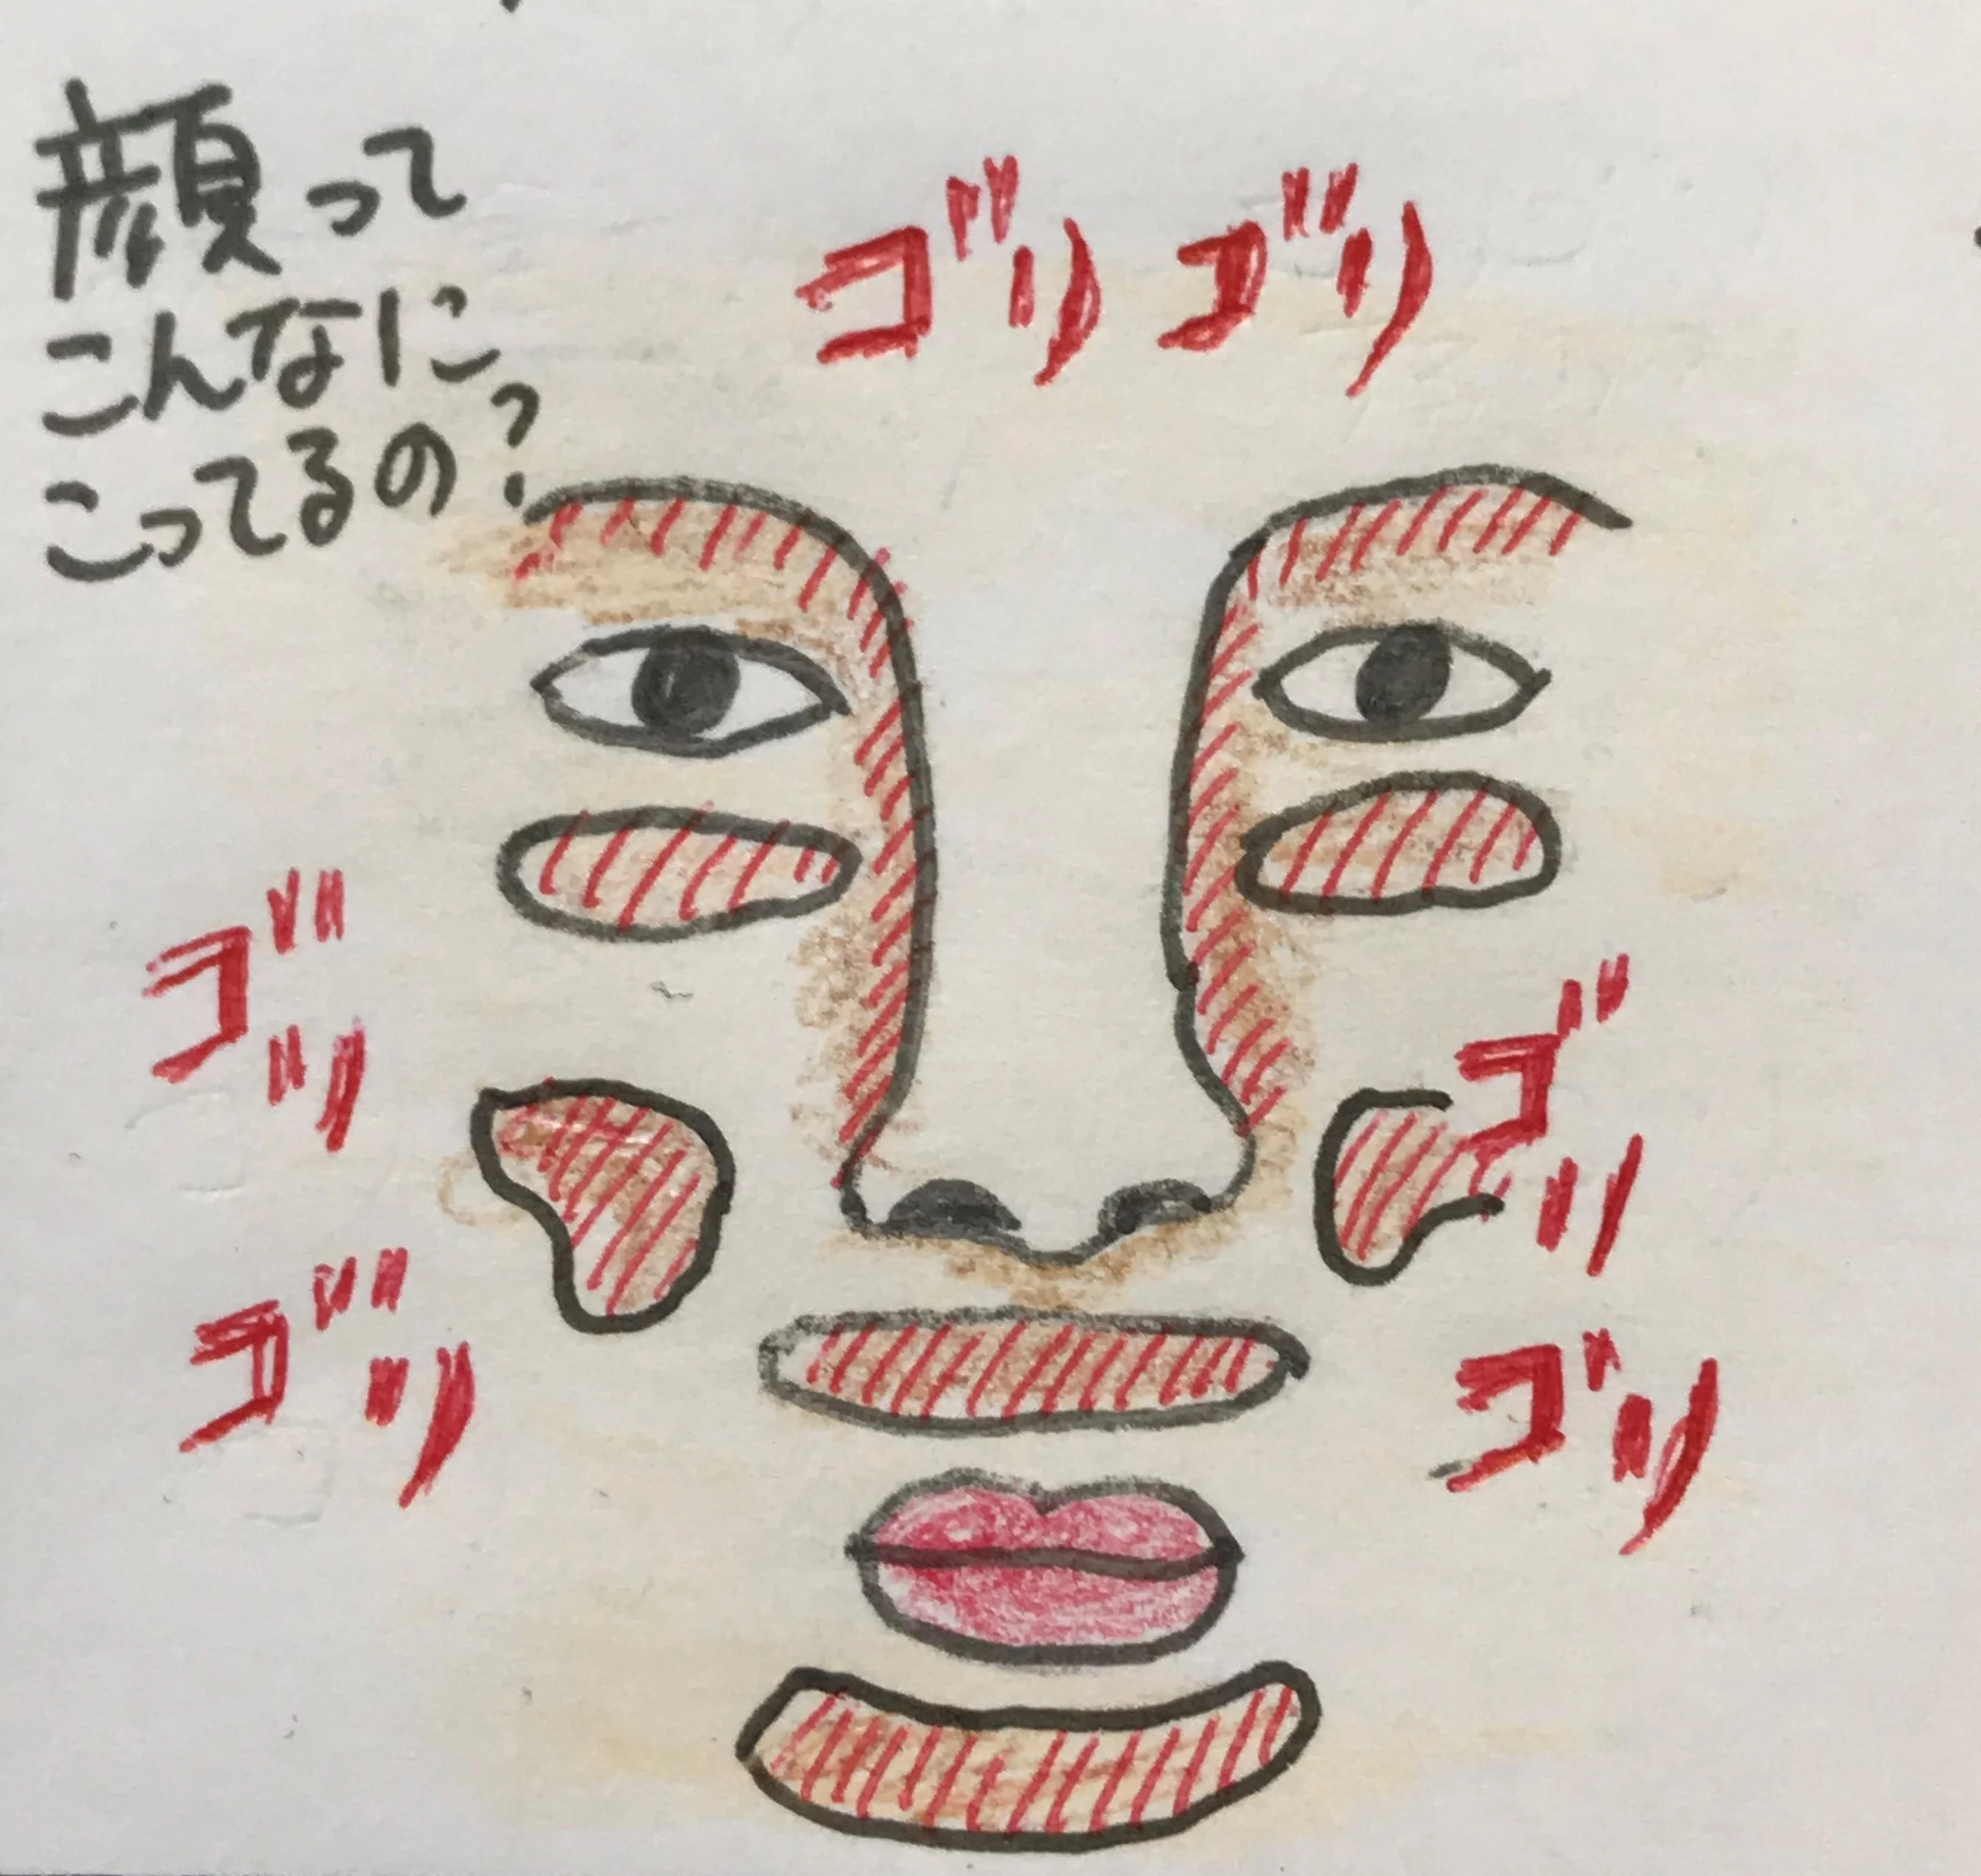 顔って
こんなに
こってるの?
ゴリゴリ
ゴリ
ゴリ
ゴリ
ゴリ